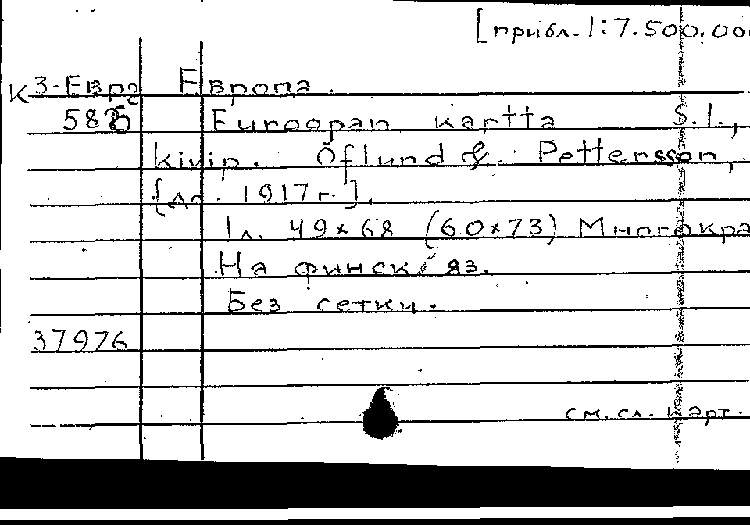 [прибл. 1:7.500.00
К3-Евр Европа.
58 Euroopan kartta S.l.,
kivip. Öflund &. Pettersson,
[до. 1917 г.].
1 л. 49×68 (60×73) Многокра
На финск. яз.
Без сетки.
37976
см. сл. карт.